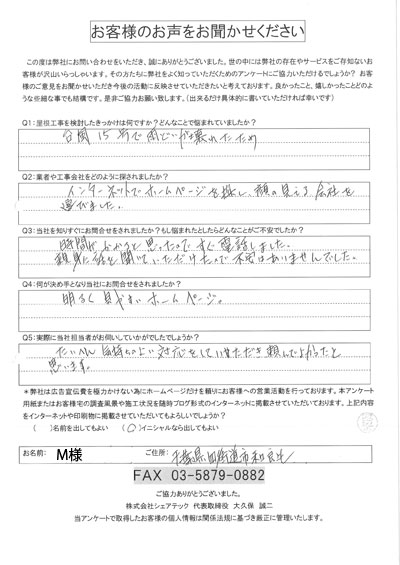 お客様のお声をお聞かせください
この度は弊社にお問い合わせをいただき、誠にありがとうございました。世の中には弊社の存在やサービスをご存知ないお
客様が沢山いらっしゃいます。その方たちに弊社をよく知っていただくためのアンケートにご協力いただけるでしょうか? お客
様のご意見をお聞かせいただき今後の活動に反映させていただきたいと考えております。良かったこと、嬉しかったことどのよ
うな些細な事でも結構です。是非ご協力お願い致します。(出来るだけ具体的に書いていただければ幸いです)
Q1:是担工事を検討したきっかけは何ですか?どんなことで悩まれていましたか?
台風15号で雨どいが壊れたため
Q2:業者や工事会社をどのように探されましたか?
インターネットでホームページを探し、顔の見える会社を
選びました。
Q3:当社を知りすぐにお問合せをされましたか?もし悩まれたとしたらどんなことがご不安でしたか?
時間がかかると思ったので、すぐ電話しました。
親身に話を聞いていただけたので不安はありませんでした。
Q4:何が決め手となり当社にお問合せをされましたか?
明るく見やすいホームページ。
Q5:実際に当社担当者がお伺いしていかがでしたでしょうか?
たいへん気持ちのよい対応をしていただき頼んでよかったと
思います。
*弊社は広告宣伝費を極力かけない為にホームページだけを頼りにお客様への営業活動を行っております。本アンケート
用紙またはお客様宅の調査風景や施工状況を随時ブログ形式のインターネットに掲載させていただいております。上記内容
をインターネットや印刷物に掲載させていただいてもよろしいでしょうか?
( )名前を出してもよい (○)イニシャルなら出してもよい
お名前: M様 ご住所: 千葉県四街道市和良比
FAX 03-5879-0882
ご協力ありがとうございました。
株式会社シェアテック 代表取締役 大久保 誠二
当アンケートで取得したお客様の個人情報は関係法規に基づき厳正に管理いたします。